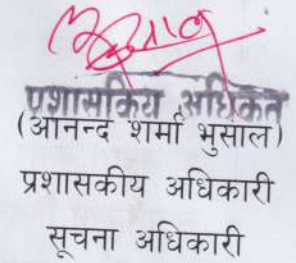 प्रशासकिय अधिकृत
(आनन्द शर्मा भुसाल)
प्रशासकीय अधिकारी
सूचना अधिकारी